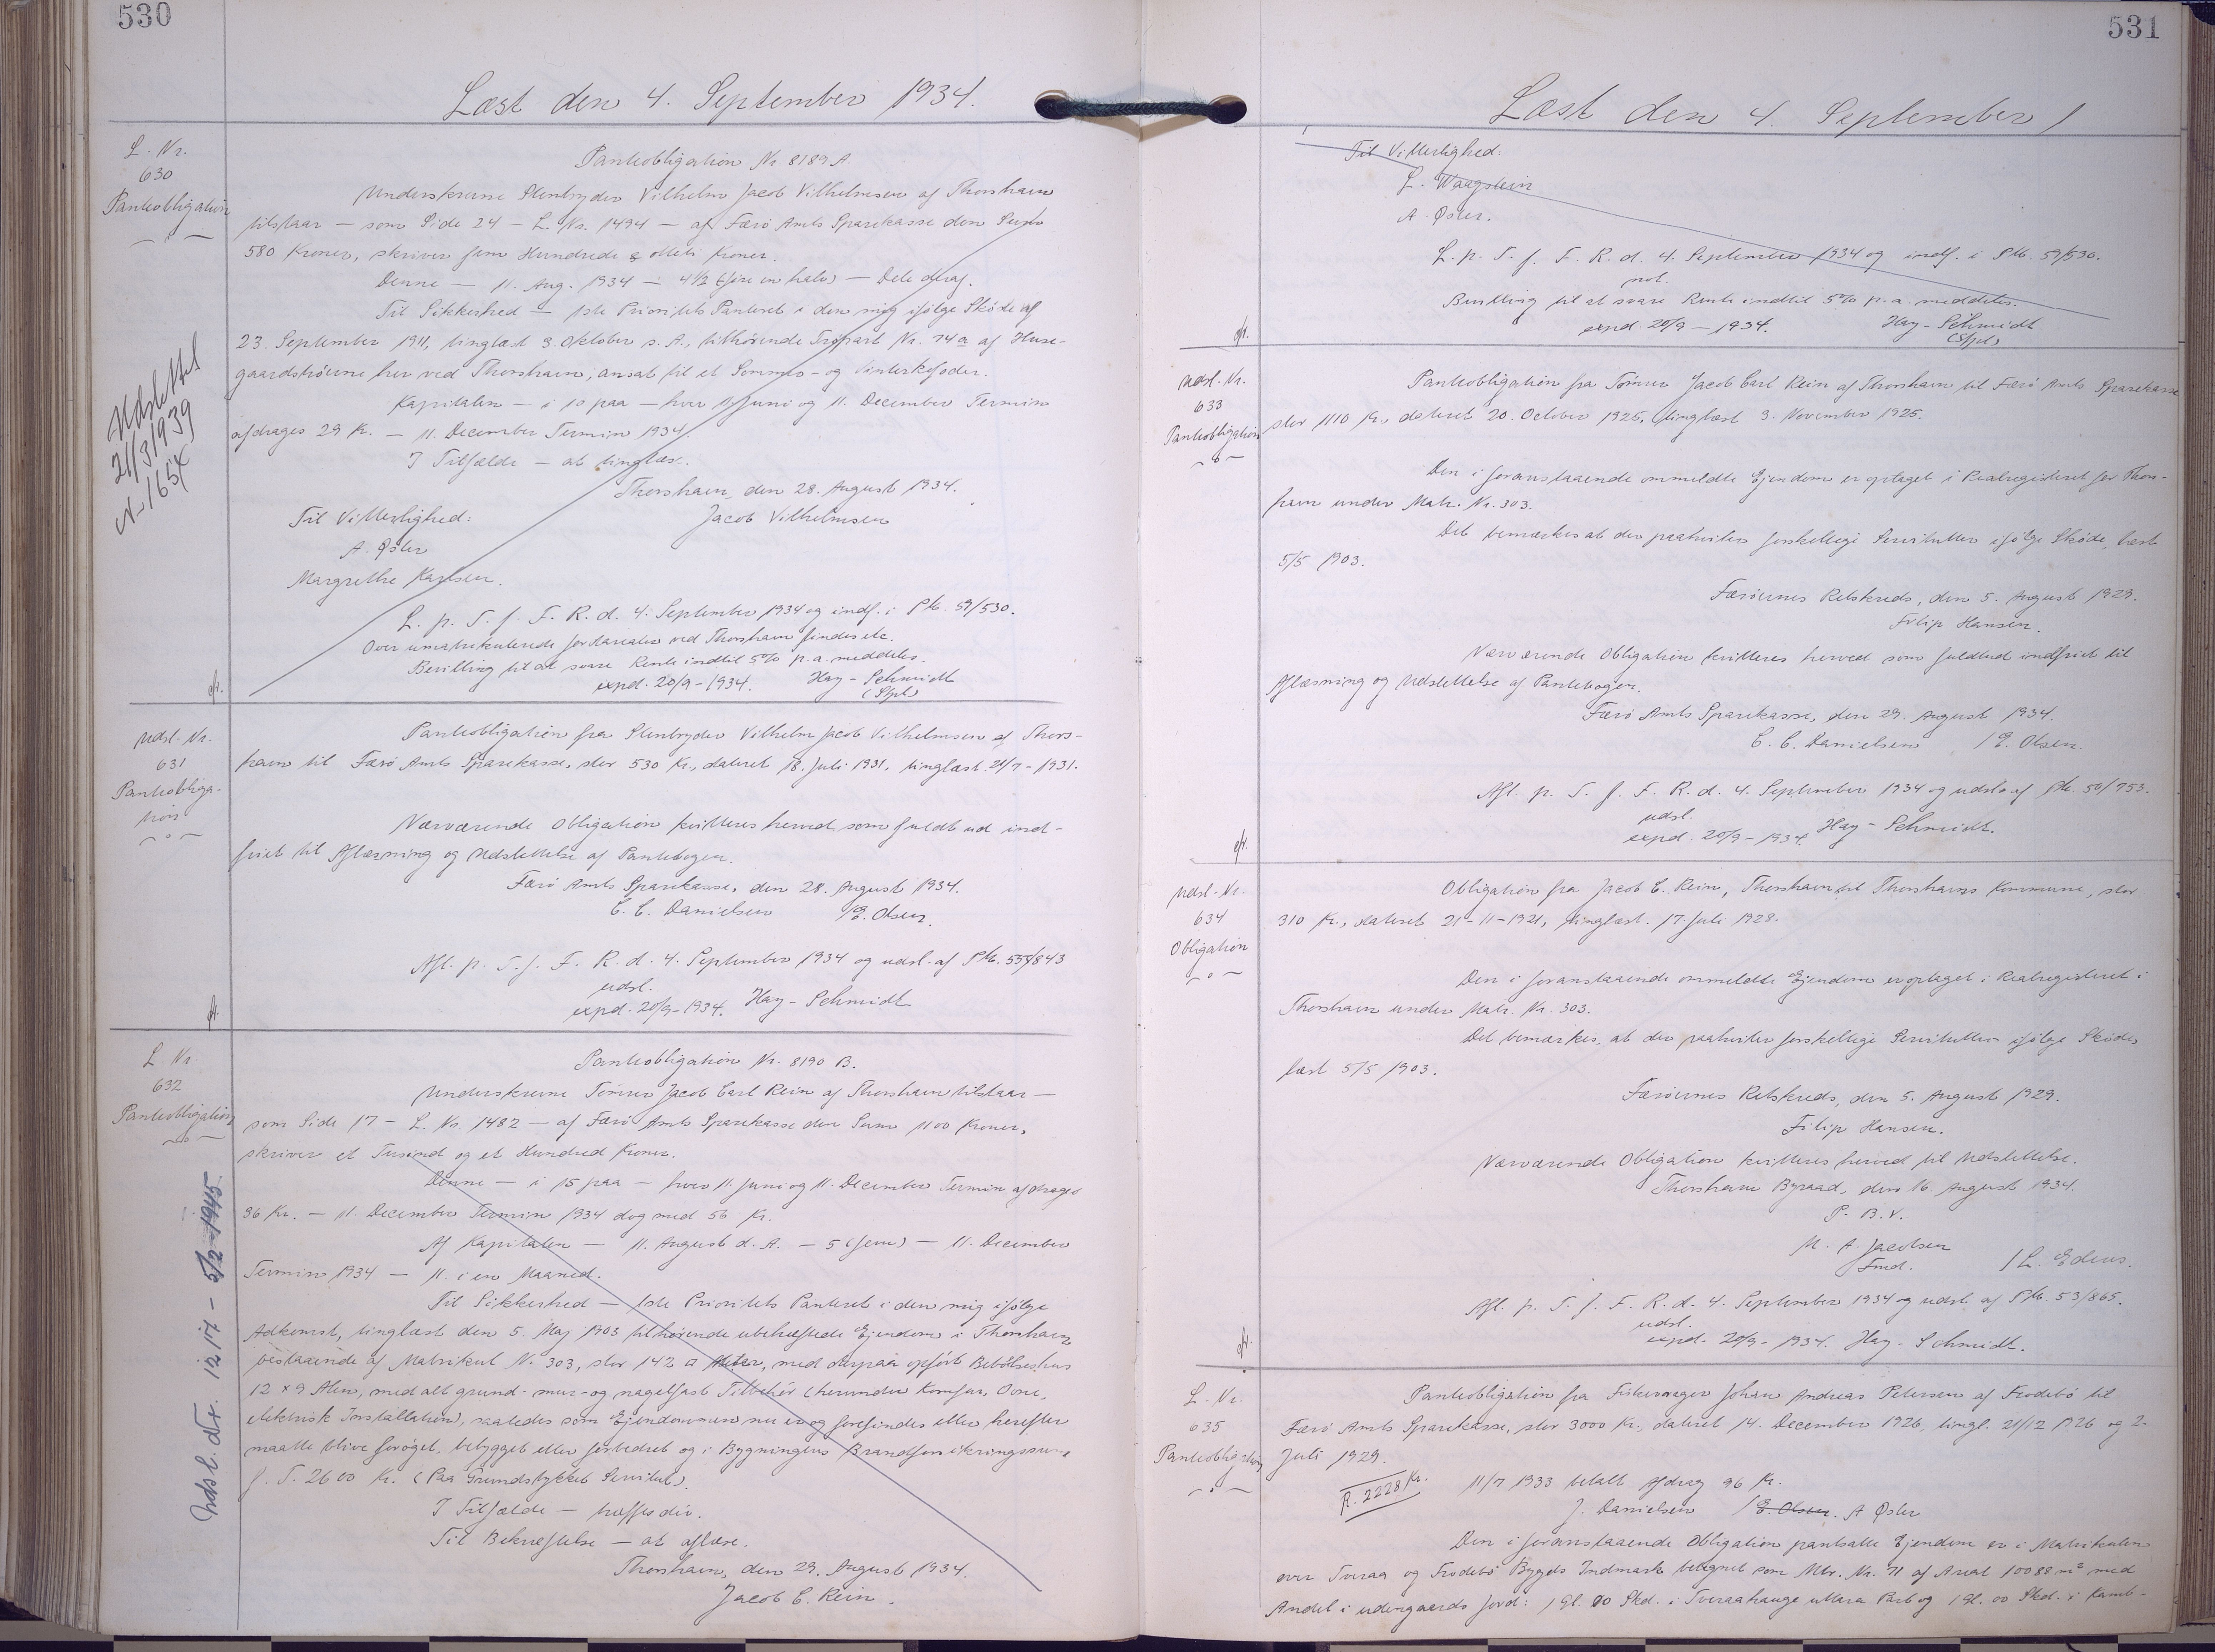 530
Læst den 4. September 1934.
L. Nr.
630
Panteobligation
Udslettet
21/3 1939
Panteobligation Nr. 8189 A.
Underskrevne Stenbryder Vilhelm Jacob Vilhelmsen af Thorshavn
tilstaar — som Side 24 — L. Nr. 1494 — af Færø Amts Sparekasse den Sum
580 Kroner, skriver fem Hundrede & otteti Kroner.
Denne — 11. Aug. 1934 — 4½ (fire en halv) — Dele deraf.
Til Sikkerhed — 1ste Prioritets Panteret i den mig ifølge Skøde af
23. September 1911, tinglæst 3. Oktober s. A., tilhørende Tropart Nr. 74 a af Huse-
gaardshøvene her ved Thorshavn, ansat til et Sommer- og Vinterkofoder.
Kapitalen — i 10 paa — hver 11 Juni og 11. December Termin
afdrages 29 Kr. — 11. December Termin 1934.
I Tilfælde — at tinglæse.
Thorshavn, den 28. August 1934.
Til Vitterlighed: Jacob Vilhelmsen
A. Øster
Margrethe Karlsen.
L. p. T. f. F. R. d. 4. September 1934 og indf. i Ptb. 59/530.
Over umatrikulerede Jordarealer ved Thorshavn findes etc.
Bevilling til at svare Rente indtil 5% p. a. meddeles.
expd. 20/9 - 1934. Hay - Schmidt
(Stpl)
Udsl. Nr.
631
Panteobliga-
tion
Panteobligation fra Stenbryder Vilhelm Jacob Vilhelmsen af Thors-
havn til Færø Amts Sparekasse, stor 530 Kr., dateret 18. Juli 1931, tinglæst 21/7 - 1931.
Nærværende Obligation kvitteres herved som fuldt ud ind-
friet til Aflæsning og Udslettelse af Pantebogen.
Færø Amts Sparekasse, den 28. August 1934.
C. C. Danielsen /E. Olsen.
Afl. p. T. f. F. R. d. 4. September 1934 og udsl. af Ptb. 55/843
udsl.
expd. 20/9 - 1934. Hay - Schmidt
L. Nr.
632
Panteobligation
Udsl. d. 12 17 - 5/2 - 1945.
Panteobligation Nr. 8190 B.
Underskrevne Tømrer Jacob Carl Rein af Thorshavn tilstaar —
som Side 17 — L. Nr. 1482 — af Færø Amts Sparekasse den Sum 1100 Kroner,
skriver et Tusind og et Hundred Kroner.
Denne — i 15 paa — hver 11. Juni og 11. December Termin afdrages
36 Kr. — 11. December Termin 1934 dog med 56 Kr.
Af Kapitalen — 11. August d. A. — 5 (fem) — 11. December
Termin 1934 — 11. i en Maaned.
Til Sikkerhed — 1ste Prioritets Panteret i den mig ifølge
Adkomst, tinglæst den 5. Maj 1903 tilhørende ubehæftede Ejendom i Thorshavn
bestaaende af Matrikul Nr. 303, stor 142 □ Meter, med derpaa opført Beboelseshus
12 x 9 Alen, med alt grund- mur- og nagelfast Tilbehør (herunder Komfur, Ovne,
elektrisk Installation), saaledes som Ejendommen nu er og forefindes eller herefter
maatte blive forøget, bebygget eller forbedret og i Bygningens Brandforsikringssum
f. T. 2600 Kr. (Paa Grundstykket Servitut).
I Tilfælde — træffes div.
Til Bekræftelse — at aflæse.
Thorshavn, den 29. August 1934.
Jacob C. Rein.
531
Læst den 4. September 1
Til Vitterlighed:
L. Waagstein
A. Øster.
L. p. T. f. F. R. d. 4. September 1934 og indf. i Ptb. 59/530.
not.
Bevilling til at svare Rente indtil 5% p. a. meddeles.
expd. 20/9 - 1934. Hay - Schmidt
(Stpl)
Udsl. Nr.
633
Panteobligation
Panteobligation fra Tømrer Jacob Carl Rein af Thorshavn til Færø Amts Sparekasse
stor 1110 Kr., dateret 20. October 1925, tinglæst 3. November 1925.
Den i foranstaaende ommeldte Ejendom er optaget i Realregisteret for Thors-
havn under Matr. Nr. 303.
Det bemærkes at der paahviler forskellige Servitutter ifølge Skøde, læst
5/5 1903.
Færøernes Retskreds, den 5. August 1929.
Filip Hansen.
Nærværende Obligation kvitteres herved som fuldtud indfriet til
Aflæsning og Udslettelse af Pantebogen.
Færø Amts Sparekasse, den 29. August 1934.
C. C. Danielsen /E. Olsen.
Afl. p. T. f. F. R. d. 4. September 1934 og udsl. af Ptb. 50/753.
udsl.
expd. 20/9 - 1934. Hay - Schmidt.
Udsl. Nr.
634
Obligation
Obligation fra Jacob C. Rein, Thorshavn til Thorshavns Kommune, stor
310 Kr., dateret 21 - 11 - 1921, tinglæst. 17. Juli 1928.
Den i foranstaaende ommeldte Ejendom er optaget i Realregisteret i
Thorshavn under Matr. Nr. 303.
Det bemærkes, at der paahviler forskellige Servitutter ifølge Skøde,
læst 5/5 1903.
Færøernes Retskreds, den 5. August 1929.
Filip Hansen.
Nærværende Obligation kvitteres herved til Udslettelse.
Thorshavn Byraad, den 16. August 1934.
P. B. V.
M. A. Jacobsen
Fmd. /L.
Afl. p. T. f. F. R. d. 4. September 1934 og udsl. af Ptb. 53/865.
udsl.
expd. 20/9 - 1934. Hay - Schmidt.
L. Nr.
635
Panteobligation
Panteobligation fra Fiskevrager Johan Andreas Petersen af Frodebø til
Færø Amts Sparekasse, stor 3000 Kr., dateret 14. December 1926, tingl. 21/12 1926 og 2.
Juli 1929.
R. 2228 Kr. 11/7 1933 betalt Afdrag 96 Kr.
J. Danielsen /E. Olsen. A Øster
Den i foranstaaende Obligation pantsatte Ejendom er i Matrikulen
over Tveraa og Frodebø Bygds Indmark betegnet som Mtr. Nr. 71 af Areal 10088 m² med
Andel i udengaards Jord: 1 Gl. 00 Skd. i Tveraahauge uttara Part og 1 Gl. 00 Skd. i Kamb-